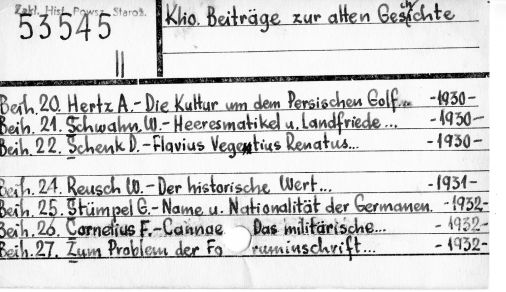 Zakl. Hist. Powsz. Staroż.
53545
Klio. Beiträge zur alten Geschichte
Beih. 20. Hertz A. - Die Kultur um dem Persischen Golf... -1930-
Beih. 21. Schwahn W. - Heeresmatikel u. Landfriede... -1930-
Beih. 22. Schenk D. - Flavius Vegentius Renatus... -1930-
Beih. 24. Reusch W. - Der historische Wert... -1931-
Beih. 25. Stümpel G. - Name u. Nationalität der Germanen. -1932-
Beih. 26. Cornelius F. - Cannae Das militärische... -1932-
Beih. 27. Zum Problem der Fo ruminschrift... -1932-